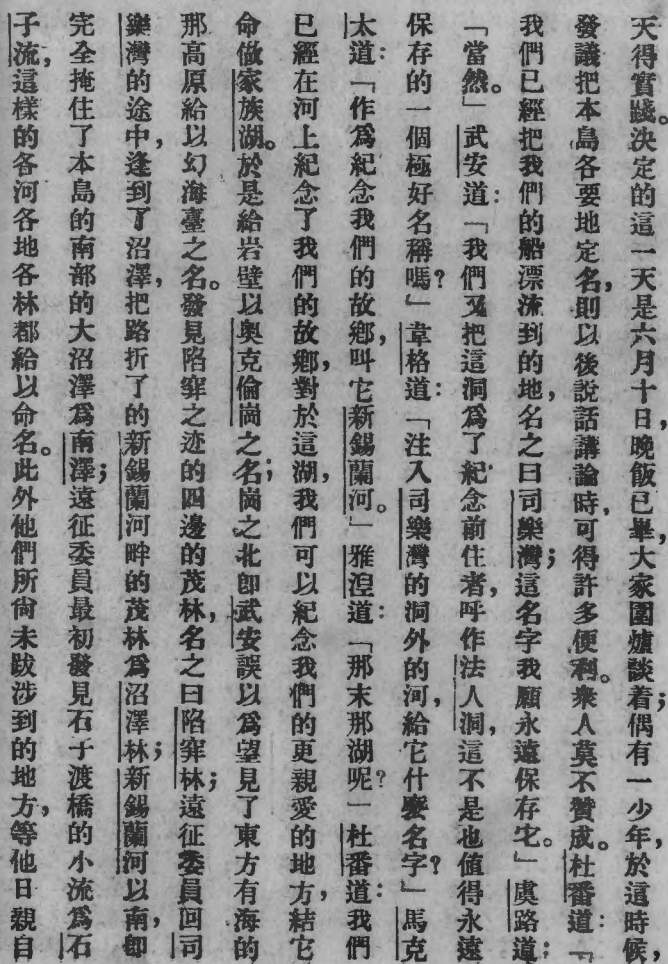 天得實踐。決定的這一天是六月十日，晚飯已畢，大家圍爐談着；偶有一少年，於這時候，
發議把本島各要地定名，則以後說話講論時，可得許多便利。衆人莫不贊成。杜番道：「
我們已經把我們的船漂流到的地，名之曰司樂灣；這名字我願永遠保存它。」虞路道：
「當然。」武安道：「我們又把這洞爲了紀念前住者，呼作法人洞，這不是也值得永遠
保存的一個極好名稱嗎？」韋格道：「注入司樂灣的洞外的河，給它什麼名字？」馬克
太道：「作爲紀念我們的故鄉，叫它新錫蘭河。」雅湼道：「那末那湖呢？」杜番道：我們
已經在河上紀念了我們的故鄉，對於這湖，我們可以紀念我們的更親愛的地方，結它
命做家族湖。於是給岩壁以奧克倫崗之名；崗之北卽武安誤以爲望見了東方有海的
那高原給以幻海臺之名。發見陷穽之迹的四邊的茂林，名之曰陷穽林；遠征委員回司
樂灣的途中，逢到了沼澤，把路折了的新錫蘭河畔的茂林爲沼澤林；新錫蘭河以南，卽
完全掩住了本島的南部的大沼澤爲南澤；遠征委員最初發見石子渡橋的小流爲石
子流，這樣的各河各地各林都給以命名。此外他們所尙未跋涉到的地方，等他日親自